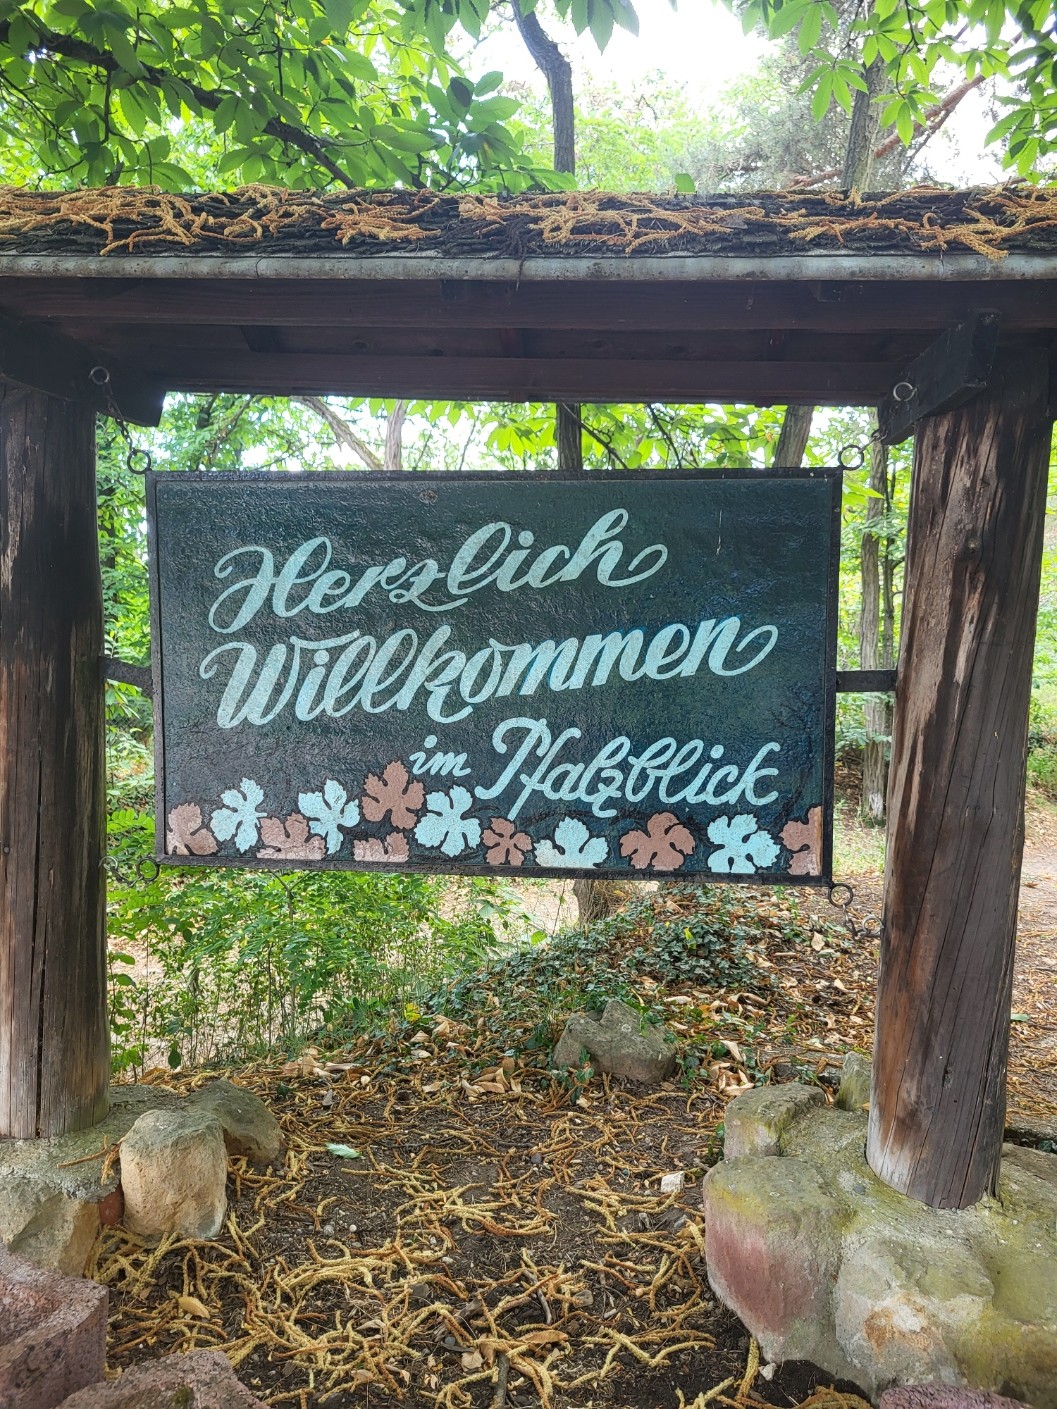 Herzlich
Willkommen
im Pfalzblick